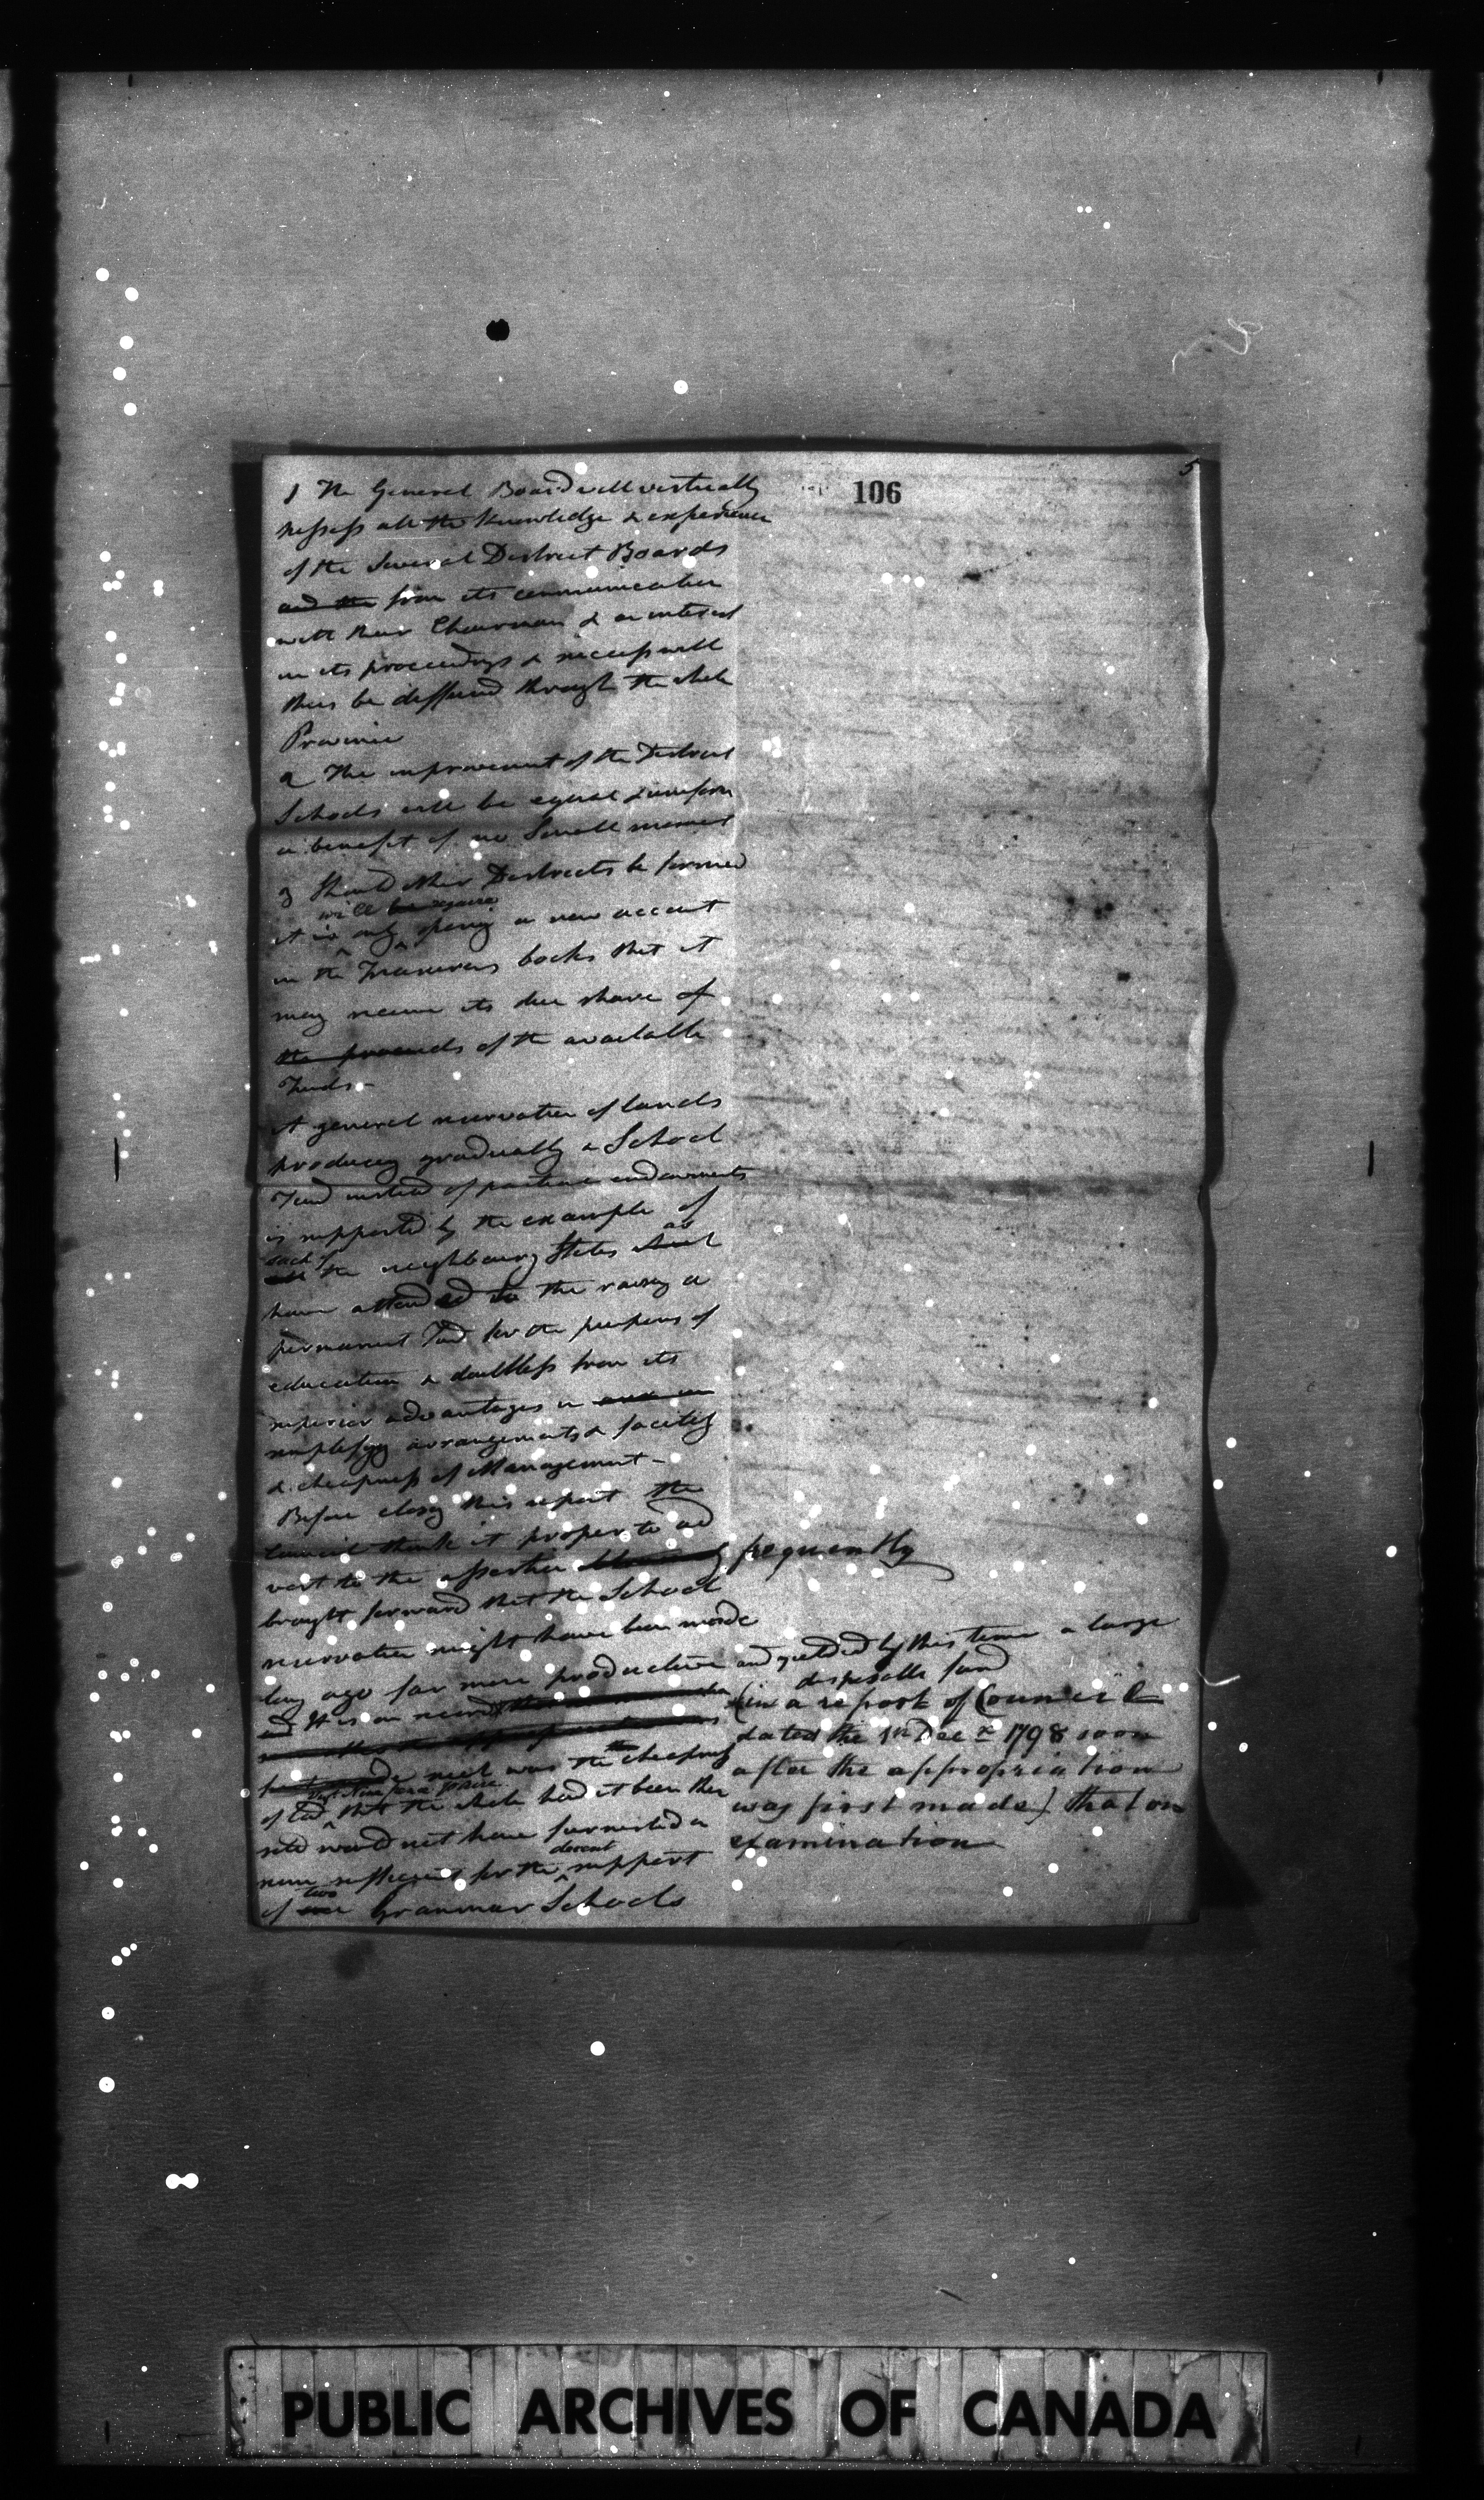 106
5
1 The General Board will virtually
possess all the knowledge & experience
of the Several District Boards
and the from its communication
with their Chairman & an interest
in its proceedings & success will
thus be diffused through the whole
Province
2 The improvement of the District
Schools will be equal & uniform
a benefit of no Small moment
3 Should other Districts be formed
will be
it is only opening a new account
in the Treasurers books that it
may receive its due share of
the proceeds of the available
Funds -
A general reservation of lands
producing gradually a School
Fund instead of partial endowments
is supported by the example of
each of as
all the neighbouring States
have attended to the raising a
permanent Fund for the purposes of
education & doubtless from its
superior advantages in
simplifying arrangements & facility
& cheapness of Management -
Before closing this report the
Council think it proper to ad
vert to the assertion frequently
brought forward that the School
reservation might have been made
long ago far more productive and yielded by this time a large
disposable fund
and It is on record (in a report of Council
dated the 1st Decr 1798 soon
after the appropriation
was first made) that on
examination
such was the cheapness
of land that the whole had it been then
sold would not have furnished a
decent
sum sufficient for the support
two
of Grammar Schools
PUBLIC ARCHIVES OF CANADA